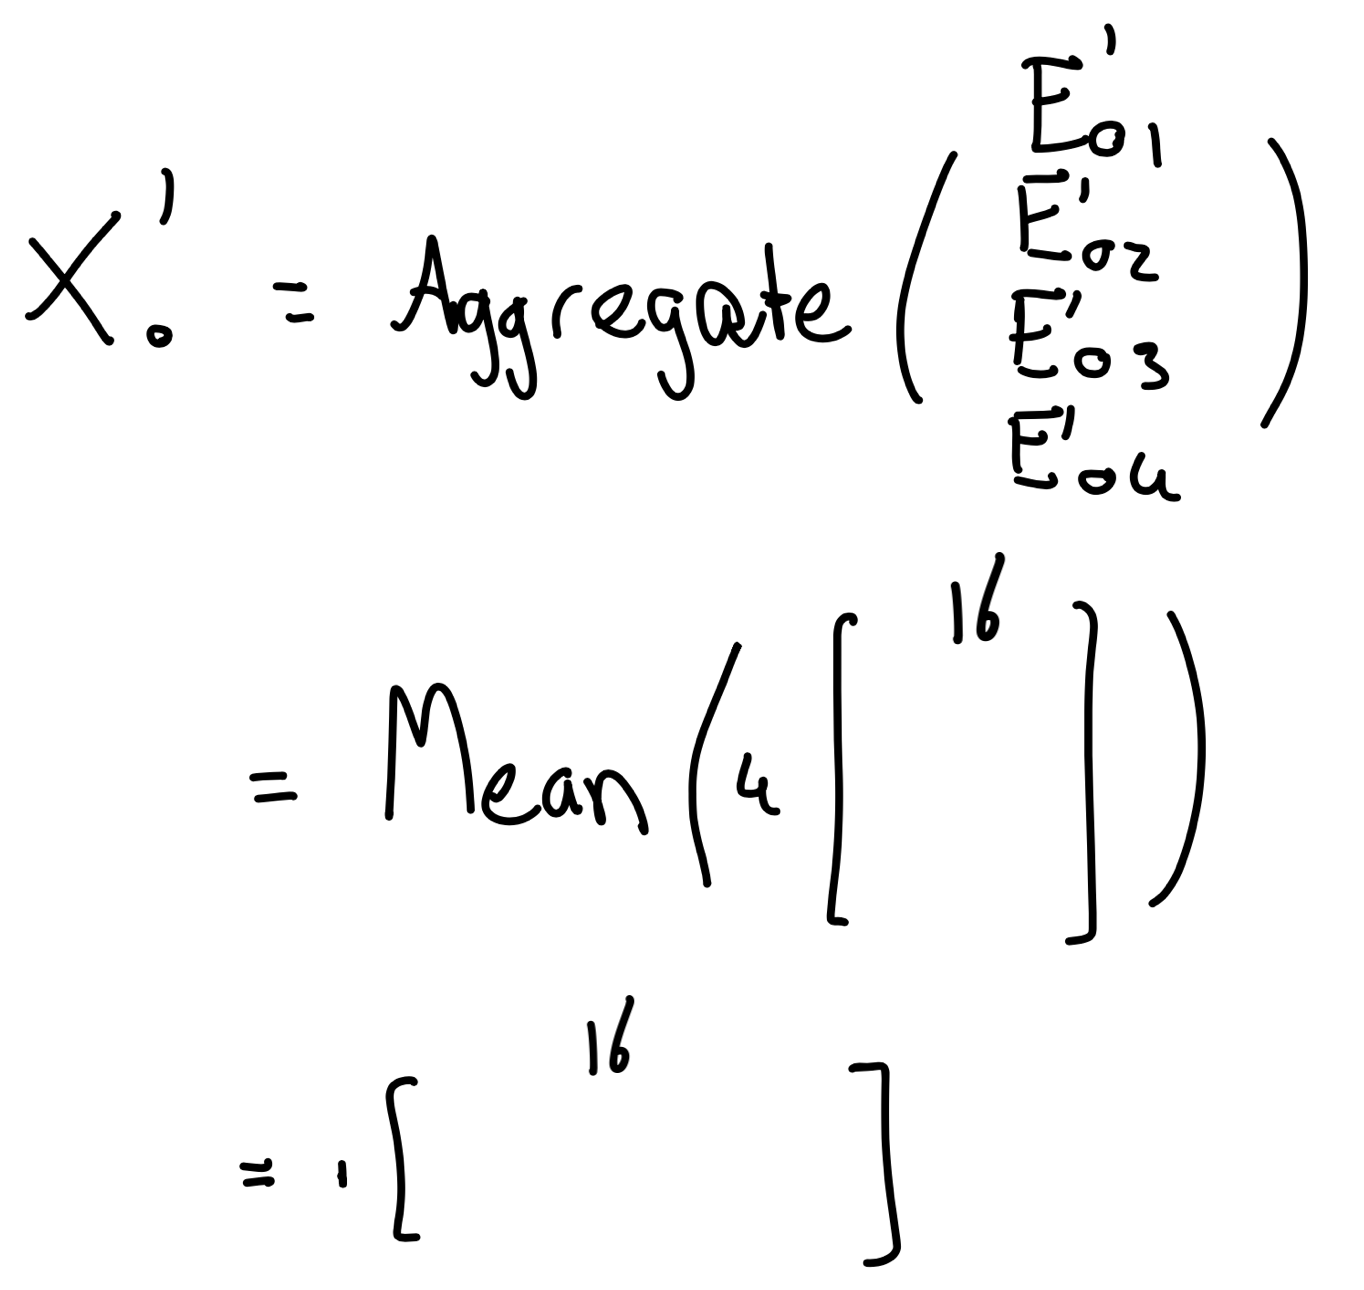 X'₀ = Aggregate ( E'₀₁
E'₀₂
E'₀₃
E'₀₄ )
= Mean ( 4 [ 16 ] )
= 1 [ 16 ]